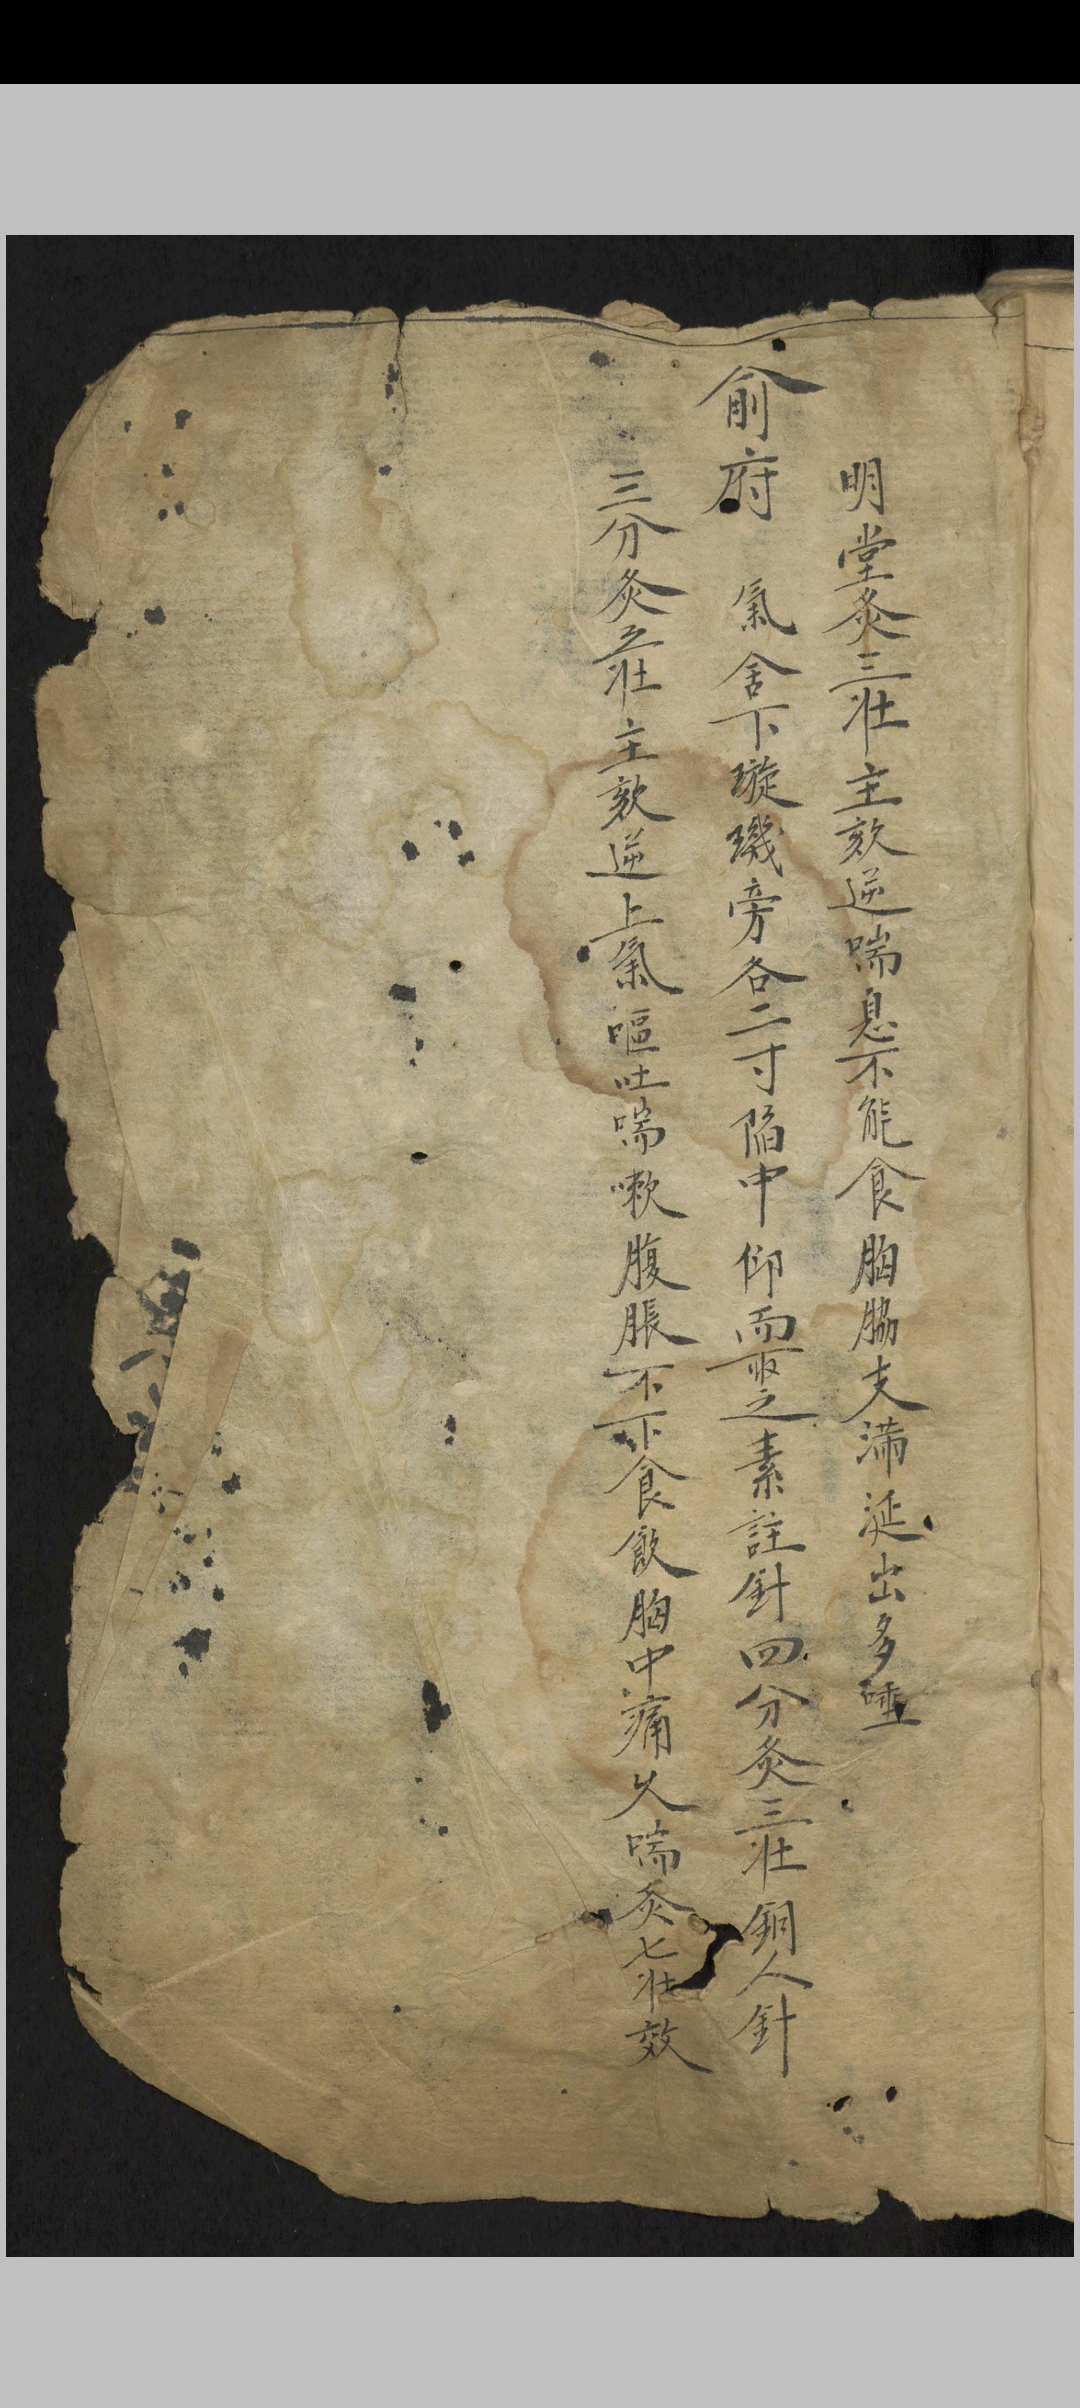 明堂灸三壮主欬逆喘息不能食胸脇支滿涎出多唾
俞府 氣舍下璇璣旁各二寸陷中仰而取之素註針四分灸三壮銅人針
三分灸五壮主欬逆上氣嘔吐喘嗽腹脹不下食飲胸中痛久喘灸七壮效